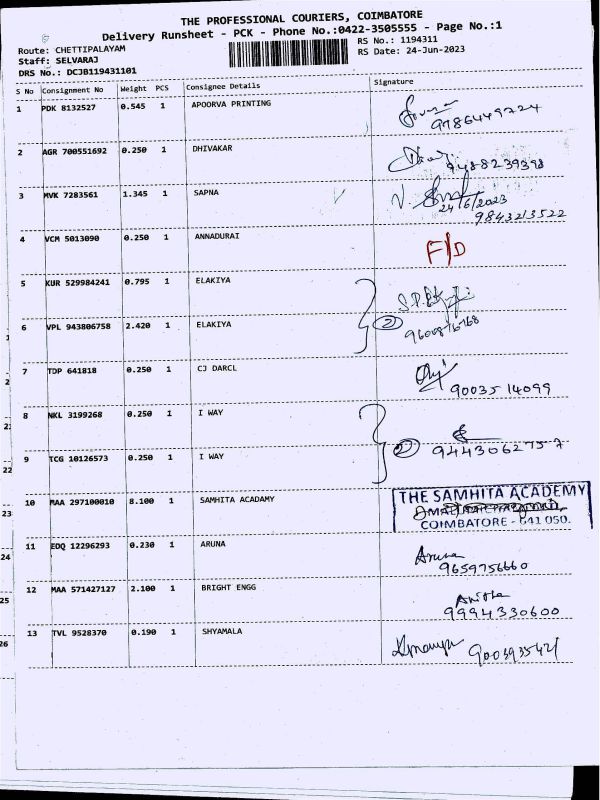 THE PROFESSIONAL COURIERS, COIMBATORE
Delivery Runsheet - PCK - Phone No.:0422-3505555 - Page No.:1
Route: CHETTIPALAYAM RS No.: 1194311
Staff: SELVARAJ RS Date: 24-Jun-2023
DRS No.: DCJB119431101
S No Consignment No Weight PCS Consignee Details Signature
1 PDK 8132527 0.545 1 APOORVA PRINTING
9786449724
2 AGR 700551692 0.250 1 DHIVAKAR
9488239398
3 MVK 7283561 1.345 1 SAPNA
24/6/2023
9843213522
4 VCM 5013090 0.250 1 ANNADURAI F/D
5 KUR 529984241 0.795 1 ELAKIYA
6 VPL 943806758 2.420 1 ELAKIYA 2
7 TDP 641818 0.250 1 CJ DARCL
9003514099
8 NKL 3199268 0.250 1 I WAY
9 TCG 10126573 0.250 1 I WAY 2 9443062757
10 MAA 297100010 8.100 1 SAMHITA ACADAMY THE SAMHITA ACADEMY
COIMBATORE - 641 050.
11 EDQ 12296293 0.230 1 ARUNA Aruna
9659756660
12 MAA 571427127 2.100 1 BRIGHT ENGG Anitha
9994330600
13 TVL 9528370 0.190 1 SHYAMALA
9003935421
22
23
24
25
26